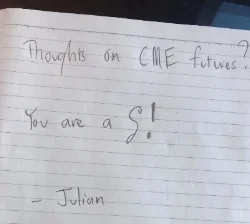 Thoughts on CME futures?
You are a S!
- Julian